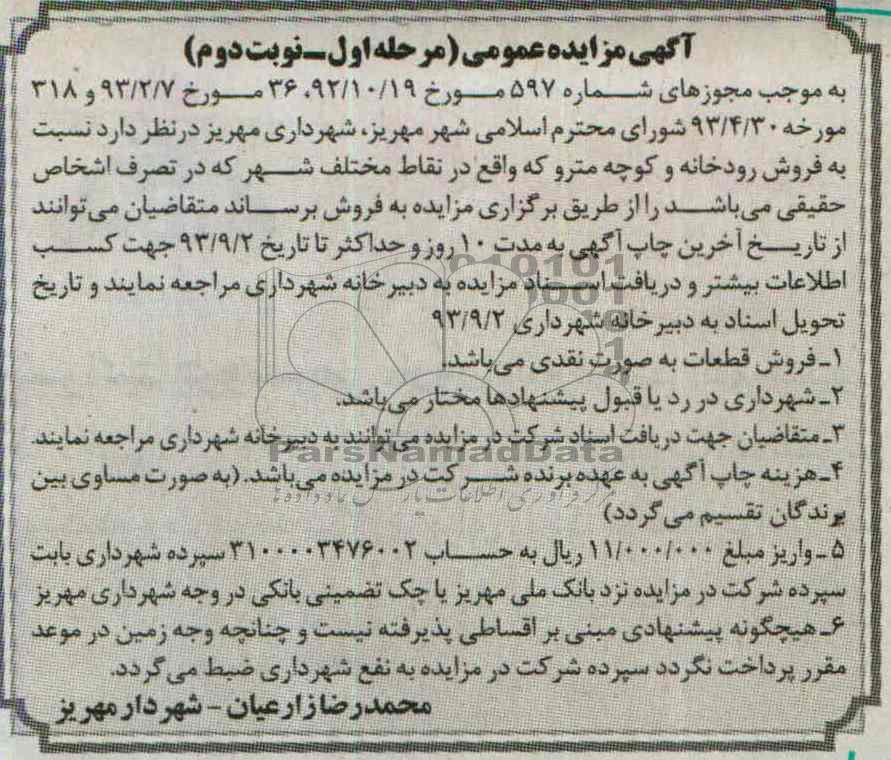 آگهی مزایده عمومی (مرحله اول - نوبت دوم)
به موجب مجوزهای شماره ۵۹۷ مورخ ۹۲/۱۰/۱۹، ۳۶ مورخ ۹۳/۲/۷ و ۳۱۸
مورخه ۹۳/۴/۳۰ شورای محترم اسلامی شهر مهریز، شهرداری مهریز درنظر دارد نسبت
به فروش رودخانه و کوچه مترو که واقع در نقاط مختلف شهر که در تصرف اشخاص
حقیقی می‌باشد را از طریق برگزاری مزایده به فروش برساند متقاضیان می‌توانند
از تاریخ آخرین چاپ آگهی به مدت ۱۰ روز و حداکثر تا تاریخ ۹۳/۹/۲ جهت کسب
اطلاعات بیشتر و دریافت اسناد مزایده به دبیرخانه شهرداری مراجعه نمایند و تاریخ
تحویل اسناد به دبیرخانه شهرداری ۹۳/۹/۲
۱- فروش قطعات به صورت نقدی می‌باشد.
۲- شهرداری در رد یا قبول پیشنهادها مختار می‌باشد.
۳- متقاضیان جهت دریافت اسناد شرکت در مزایده می‌توانند به دبیرخانه شهرداری مراجعه نمایند.
ParsNamadData
۴- هزینه چاپ آگهی به عهده برنده شرکت در مزایده می‌باشد. (به صورت مساوی بین
برندگان تقسیم می‌گردد)
۵- واریز مبلغ ۱۱/۰۰۰/۰۰۰ ریال به حساب ۳۱۰۰۰۰۳۴۷۶۰۰۲ سپرده شهرداری بابت
سپرده شرکت در مزایده نزد بانک ملی مهریز یا چک تضمینی بانکی در وجه شهرداری مهریز
۶- هیچگونه پیشنهادی مبنی بر اقساطی پذیرفته نیست و چنانچه وجه زمین در موعد
مقرر پرداخت نگردد سپرده شرکت در مزایده به نفع شهرداری ضبط می‌گردد.
محمدرضا زارعیان - شهردار مهریز